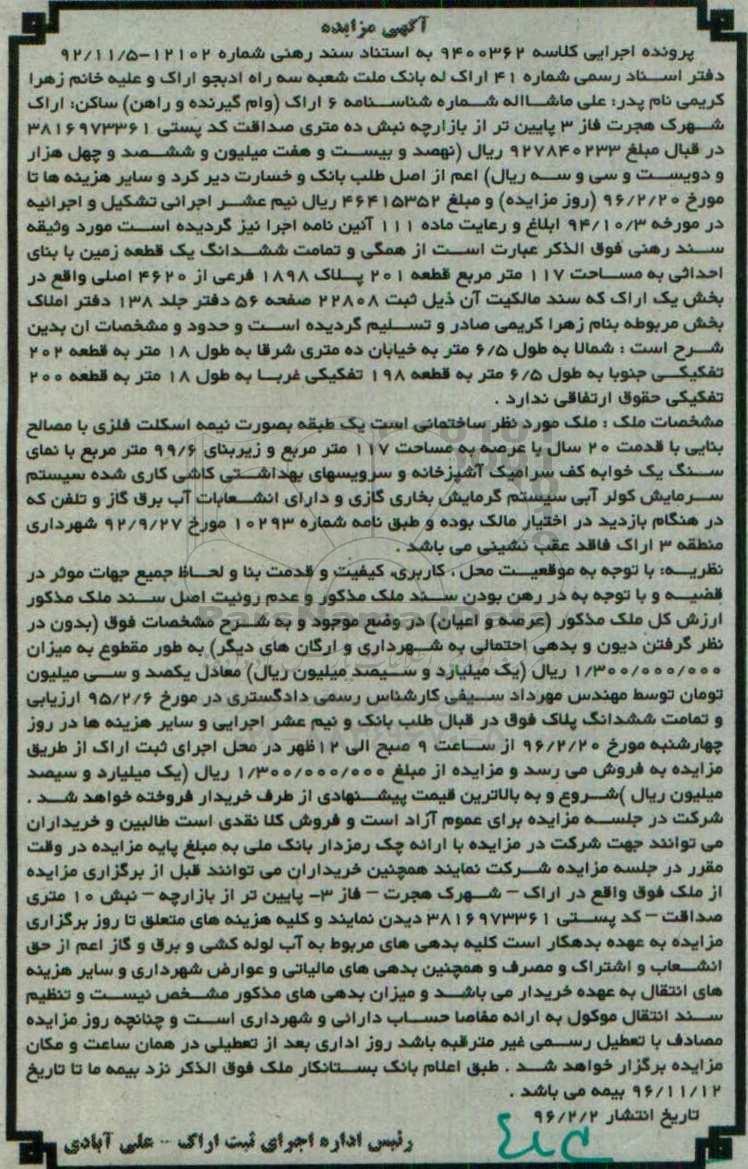 آگهی مزایده
پرونده اجرایی کلاسه ۹۴۰۰۳۶۲ به استناد سند رهنی شماره ۱۲۱۰۲-۹۲/۱۱/۵
دفتر اسناد رسمی شماره ۴۱ اراک له بانک ملت شعبه سه راه ادبجو اراک و علیه خانم زهرا
کریمی نام پدر: علی ماشااله شماره شناسنامه ۶ اراک (وام گیرنده و راهن) ساکن: اراک
شهرک هجرت فاز ۳ پایین تر از بازارچه نبش ده متری صداقت کد پستی ۳۸۱۶۹۷۳۳۶۱
در قبال مبلغ ۹۲۷۸۴۰۲۳۳ ریال (نهصد و بیست و هفت میلیون و ششصد و چهل هزار
و دویست و سی و سه ریال) اعم از اصل طلب بانک و خسارت دیر کرد و سایر هزینه ها تا
مورخ ۹۶/۲/۲۰ (روز مزایده) و مبلغ ۴۶۴۱۵۳۵۲ ریال نیم عشر اجرائی تشکیل و اجرائیه
در مورخه ۹۴/۱۰/۳ ابلاغ و رعایت ماده ۱۱۱ آئین نامه اجرا نیز گردیده است مورد وثیقه
سند رهنی فوق الذکر عبارت است از همگی و تمامت ششدانگ یک قطعه زمین با بنای
احداثی به مساحت ۱۱۷ متر مربع قطعه ۲۰۱ پلاک ۱۸۹۸ فرعی از ۴۶۲۰ اصلی واقع در
بخش یک اراک که سند مالکیت آن ذیل ثبت ۲۲۸۰۸ صفحه ۵۶ دفتر جلد ۱۳۸ دفتر املاک
بخش مربوطه بنام زهرا کریمی صادر و تسلیم گردیده است و حدود و مشخصات ان بدین
شرح است : شمالا به طول ۶/۵ متر به خیابان ده متری شرقا به طول ۱۸ متر به قطعه ۲۰۲
تفکیکی جنوبا به طول ۶/۵ متر به قطعه ۱۹۸ تفکیکی غربا به طول ۱۸ متر به قطعه ۲۰۰
تفکیکی حقوق ارتفاقی ندارد .
مشخصات ملک : ملک مورد نظر ساختمانی است یک طبقه بصورت نیمه اسکلت فلزی با مصالح
بنایی با قدمت ۲۰ سال با عرصه به مساحت ۱۱۷ متر مربع و زیربنای ۹۹/۶ متر مربع با نمای
سنگ یک خوابه کف سرامیک آشپزخانه و سرویسهای بهداشتی کاشی کاری شده سیستم
سرمایش کولر آبی سیستم گرمایش بخاری گازی و دارای انشعابات آب برق گاز و تلفن که
در هنگام بازدید در اختیار مالک بوده و طبق نامه شماره ۱۰۲۹۳ مورخ ۹۲/۹/۲۷ شهرداری
منطقه ۳ اراک فاقد عقب نشینی می باشد .
نظریه: با توجه به موقعیت محل ، کاربری، کیفیت و قدمت بنا و لحاظ جمیع جهات موثر در
قضیه و با توجه به در رهن بودن سند ملک مذکور و عدم روئیت اصل سند ملک مذکور
ارزش کل ملک مذکور (عرصه و اعیان) در وضع موجود و به شرح مشخصات فوق (بدون در
نظر گرفتن دیون و بدهی احتمالی به شهرداری و ارگان های دیگر) به طور مقطوع به میزان
۱/۳۰۰/۰۰۰/۰۰۰ ریال (یک میلیارد و سیصد میلیون ریال) معادل یکصد و سی میلیون
تومان توسط مهندس مهرداد سیفی کارشناس رسمی دادگستری در مورخ ۹۵/۲/۶ ارزیابی
و تمامت ششدانگ پلاک فوق در قبال طلب بانک و نیم عشر اجرایی و سایر هزینه ها در روز
چهارشنبه مورخ ۹۶/۲/۲۰ از ساعت ۹ صبح الی ۱۲ظهر در محل اجرای ثبت اراک از طریق
مزایده به فروش می رسد و مزایده از مبلغ ۱/۳۰۰/۰۰۰/۰۰۰ ریال (یک میلیارد و سیصد
میلیون ریال )شروع و به بالاترین قیمت پیشنهادی از طرف خریدار فروخته خواهد شد .
شرکت در جلسه مزایده برای عموم آزاد است و فروش کلا نقدی است طالبین و خریداران
می توانند جهت شرکت در مزایده با ارائه چک رمزدار بانک ملی به مبلغ پایه مزایده در وقت
مقرر در جلسه مزایده شرکت نمایند همچنین خریداران می توانند قبل از برگزاری مزایده
از ملک فوق واقع در اراک – شهرک هجرت – فاز ۳- پایین تر از بازارچه – نبش ۱۰ متری
صداقت – کد پستی ۳۸۱۶۹۷۳۳۶۱ دیدن نمایند و کلیه هزینه های متعلق تا روز برگزاری
مزایده به عهده بدهکار است کلیه بدهی های مربوط به آب لوله کشی و برق و گاز اعم از حق
انشعاب و اشتراک و مصرف و همچنین بدهی های مالیاتی و عوارض شهرداری و سایر هزینه
های انتقال به عهده خریدار می باشد و میزان بدهی های مذکور مشخص نیست و تنظیم
سند انتقال موکول به ارائه مفاصا حساب دارائی و شهرداری است و چنانچه روز مزایده
مصادف با تعطیل رسمی غیر مترقبه باشد روز اداری بعد از تعطیلی در همان ساعت و مکان
مزایده برگزار خواهد شد . طبق اعلام بانک بستانکار ملک فوق الذکر نزد بیمه ما تا تاریخ
۹۶/۱۱/۱۲ بیمه می باشد .
تاریخ انتشار ۹۶/۲/۲
رئیس اداره اجرای ثبت اراک – علی آبادی